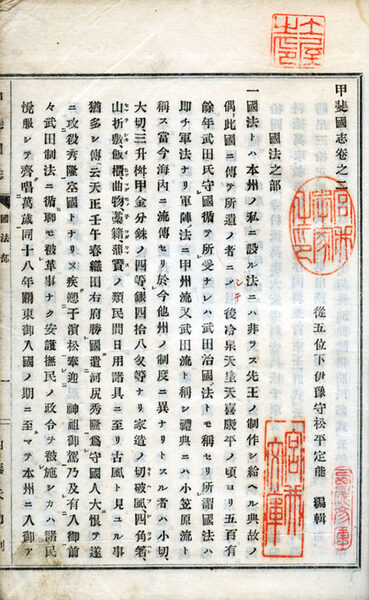 甲斐國志卷之二
從五位下伊豫守松平定能 編輯
國法之部
一國法トハ本州ノ私ニ設ル法ニハ非ラス先王ノ制作シ給ヘル典故ノ
偶此國ニ傳ヘ所遺ノ者ニシテ後冷泉天皇天喜康平ノ頃ヨリ五百有
餘年武田氏守國循テ所受ナレハ武田治國法トモ稱セリ所謂國法ハ
即チ軍法ナリ軍陣法ニ甲州流又武田流ト稱シ禮典ニハ小笠原流ト
稱ス當今海內ニ流傳セリ於今他州ノ制度ニ異ナリトスル者ハ小切、
大切、三升桝甲金分銖ノ四等、銀四拾八匁等ナリ家造ノ切破風四角箸、
山折敷飯櫃曲物藁蒲簀ノ類民間日用諸具ニ至リ古風ト見ユル事
猶多シ傳云天正壬午春織田右府勝國遣河尻秀隆爲守國人大恨テ遂
ニ攻殺秀隆空國トナリヌ疾愬于濱松奉迎 神祖御駕乃及有入御前
々武田制法ニ循聊モ被革事ナク安護撫民ノ政令ヲ被施シカハ諸民
悅服シテ齊唱萬歲同十八年關東御入國ノ期ニ至マテ本州ニ入御ア
國法部
一